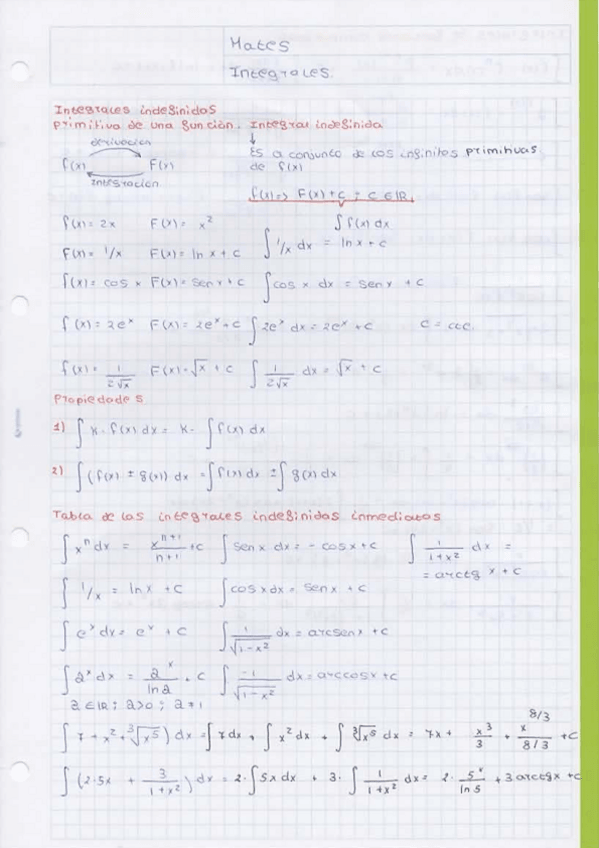 Mates
Integrales.
Integrales indefinidas
Primitiva de una función. Integral indefinida
derivación
f(x) F(x)
integración
↓
Es a conjunto de las infinitas primitivas
de f(x)
f(x) => F(x) + C ; C ∈ IR
∫ f(x) dx
f(x) = 2x F(x) = x²
F(x) = 1/x F(x) = ln x + c ∫ 1/x dx = ln x + c
f(x) = cos x F(x) = sen x + c ∫ cos x dx = sen x + c
f(x) = 2e^x F(x) = 2e^x + c ∫ 2e^x dx = 2e^x + c C = cte.
f(x) = 1/(2√x) F(x) = √x + c ∫ 1/(2√x) dx = √x + c
Propiedades
1) ∫ K · f(x) dx = K · ∫ f(x) dx
2) ∫ (f(x) ± g(x)) dx = ∫ f(x) dx ± ∫ g(x) dx
Tabla de las integrales indefinidas inmediatas
∫ x^n dx = x^(n+1)/(n+1) + c ∫ sen x dx = - cos x + c ∫ 1/(1+x²) dx =
= arctg x + c
∫ 1/x = ln x + c ∫ cos x dx = sen x + c
∫ e^x dx = e^x + c ∫ 1/√(1-x²) dx = arcsen x + c
∫ a^x dx = a^x/ln a + c ∫ -1/√(1-x²) dx = arccos x + c
a ∈ IR ; a>0 ; a ≠ 1
∫ 7 + x² + ∛(x^5)) dx = ∫ 7 dx + ∫ x² dx + ∫ ∛(x^5) dx = 7x + x³/3 + x^(8/3)/(8/3) + c
∫ (2·5x + 3/(1+x²)) dx = 2· ∫ 5x dx + 3· ∫ 1/(1+x²) dx = 2· 5^x/ln 5 + 3 arctg x + c